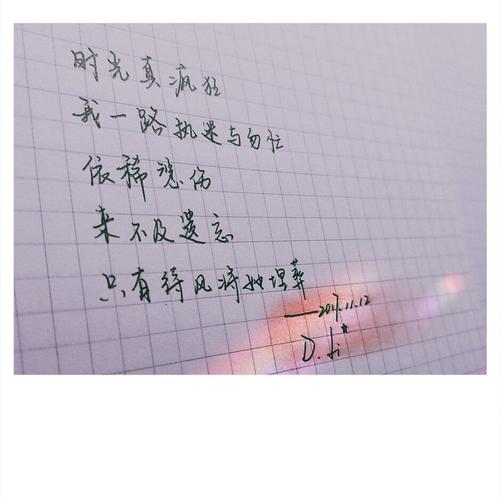 时光真疯狂
我一路执迷与匆忙
依稀悲伤
来不及遗忘
只有待风将她埋葬
——2017.11.12
D.Li